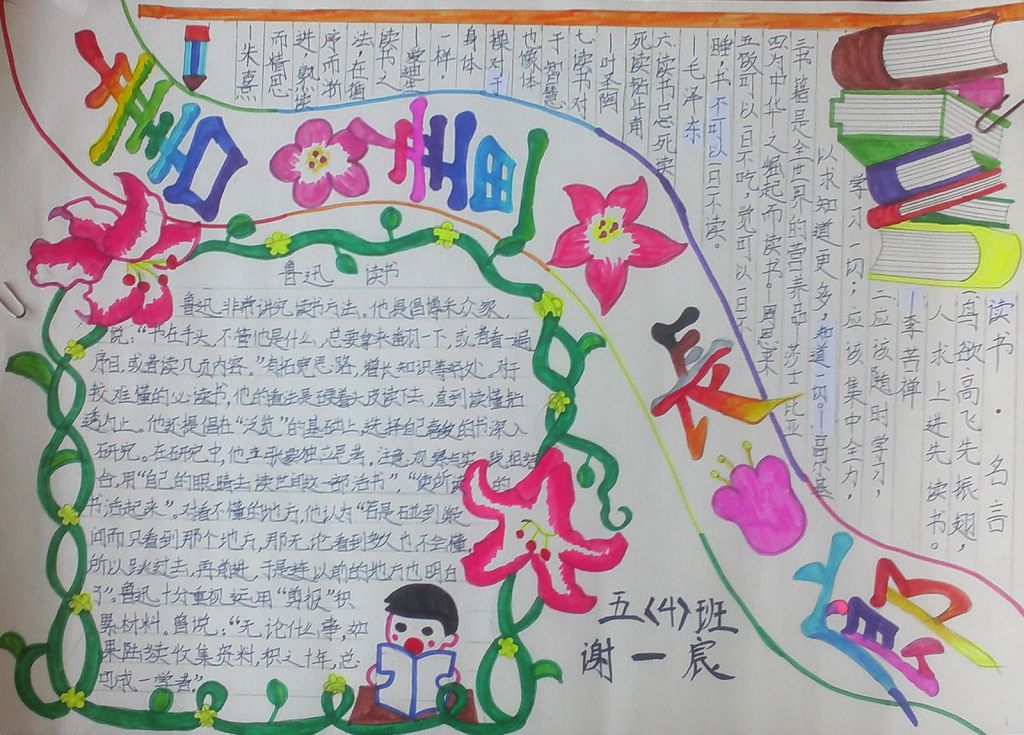 长
读书·名言
(一)鸟欲高飞先振翅,
人求上进先读书。
—李苦禅
二应该随时学习,
学习一切,应该集中全力,
以求知道更多,知道一切。—高尔基
三书籍是全世界的营养品—莎士比亚
四为中华之崛起而读书。—周恩来
五饭可以一日不吃,觉可以一日不
睡,书不可以一日不读。
—毛泽东
六读书忌死读,
死读钻牛角
—叶圣陶
七读书对
于智慧
也像体
操对于
身体
一样。
—爱迪生
读书之
法,在循
序而渐
进,熟读
而精思
—朱熹
鲁迅 读书
鲁迅非常讲究读书方法。他提倡博采众家,
说:“书在手头,不管他是什么,总要拿来翻一下,或者看一遍
序目,或者读几页内容。”有拓宽思路,增长知识等好处。对于
较难懂的必读书,他的看法是硬着头皮读下去,直到读懂钻
透为止。他还提倡在“泛览”的基础上,选择自己喜爱的书深入
研究。在研究中,他主张要独立思考,注意观察与实践相结
合,用“自己的眼睛去读世间这一部活书”,“使所读的
书活起来”。对看不懂的地方,他认为“若是碰到疑
问而只看到那个地方,那无论看到多久也不会懂。
所以,跳过去,再前进,于是连以前的地方也明白
了”。鲁迅十分重视运用“剪报”积
累材料。曾说:“无论什么事,如
果陆续收集资料,积之十年,总
可成一学者。”
五(4)班
谢一宸